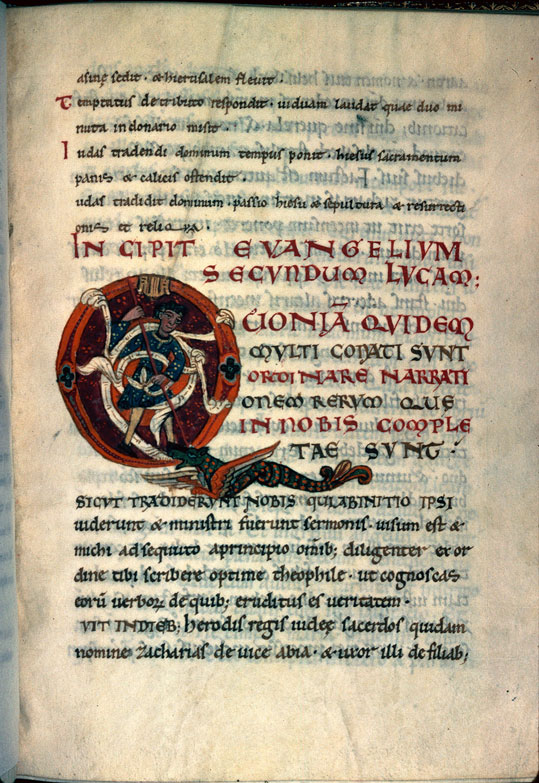 asinę sedit · & hierusalem fleuit ·
Temptatus de tributo respondit · uiduam laudat quae duo mi
nuta in donario misit ·
Iudas tradendi dominum tempus ponit · hiesus sacramentum
panis & calicis ostendit ·
udas tradidit dominum · passio hiesu & sepultura & resurrecti
onis et reliqua ·
INCIPIT EVANGELIUM
SECUNDUM LUCAM;
QUONIĀ QUIDEM
MULTI CONATI SUNT
ORDINARE NARRATI
ONEM RERUM QUĘ
IN NOBIS COMPLE
TAE SUNT ·
SICUT TRADIDERUNT NOBIS QUI AB INITIO IPSI
uiderunt & ministri fuerunt sermonis · uisum est &
michi adsequuto a principio omīb; diligenter ex or
dine tibi scribere optime theophile · ut cognoscas
eorū uerborꝝ de quib; eruditus es ueritatem ·
UIT IN DIEB; herodis regis iudeę sacerdos quidam
nomine Zacharias de uice abia · & uxor illi de filiab;